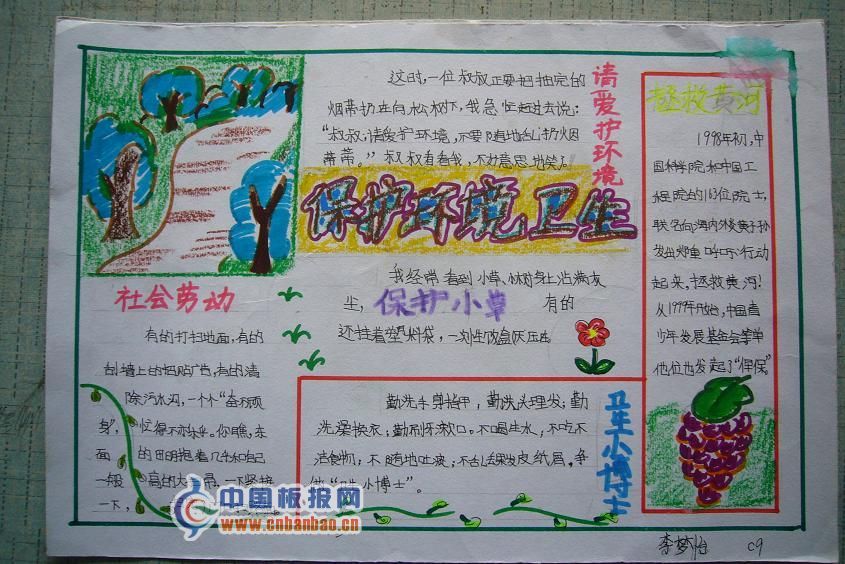 这时,一位叔叔正要把抽完的
烟蒂扔在向松树下,我急忙赶过去说:
“叔叔,请爱护环境,不要随地乱扔烟
蒂蒂。”叔叔看看我,不好意思地笑了
请爱护环境
保护环境卫生
社会劳动
有的打扫地面,有的
刮墙上的招贴广告,有的清
除污水沟,一个个“奋不顾
身”,忙得不亦乐乎。你瞧,东
面的田明抱着几乎和自己
一般高的大
一下,
我经常看到小草、树身上沾满灰
尘,
保护小草
有的
还挂着塑料袋,一次性饭盒灰压
勤洗手剪指甲,勤洗头理发;勤
洗澡换衣,勤刷牙漱口。不喝生水,不吃不
洁食物;不随地吐痰,不乱丢果皮纸屑,争
做“卫生小博士”。
卫生小博士
拯救黄河
1998年初,中
国科学院和中国工
程院的163位院士,
联名向海内外炎黄子孙
发出郑重呼吁:行动
起来,拯救黄河!
从1999年开始,中国青
少年发展基金会等单
他位也发起了“保
李梦怡 C9
中国板报网
www.cnbanbao.cn